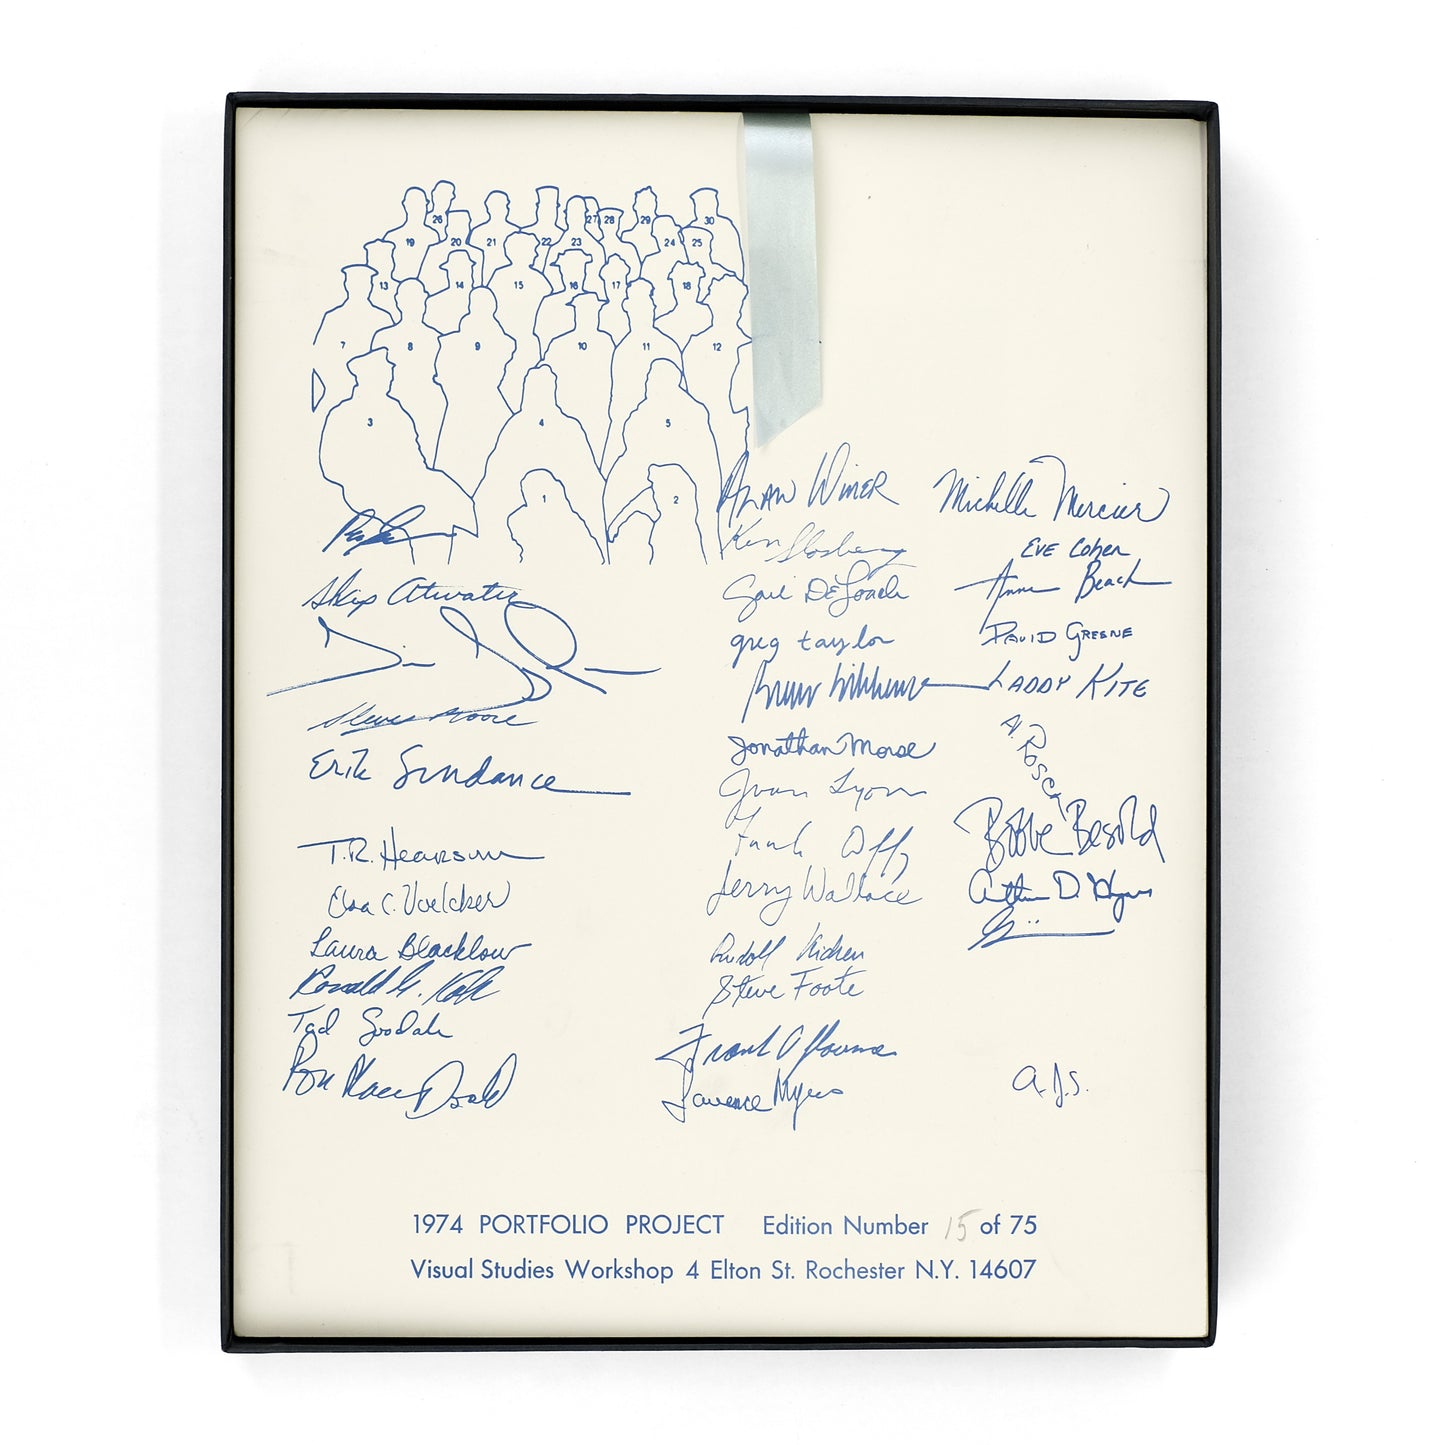 26 27 28 29 30
19 20 21 22 23 24 25
13 14 15 16 17 18
7 8 9 10 11 12
3 4 5
1 2
Skip Atwater
Steven Moore
Erik Sundance
T.R. Hearsum
Laura Blacklow
Ronald G.
Tad Goodale
Ron MacDonald
ALAN WINER
Ken Slosberg
Gail DeLoach
greg taylor
Jonathan Morse
Joan Lyons
Frank
Jerry Wallace
Rudolf Kicken
Steve Foote
Frank
Lawrence Myers
Michelle Mercier
EVE Cohen
Anne Beach
DAVID GREENE
LADDY KITE
Bobbe Besold
Arthur D.
A.J.S.
1974 PORTFOLIO PROJECT Edition Number 15 of 75
Visual Studies Workshop 4 Elton St. Rochester N.Y. 14607